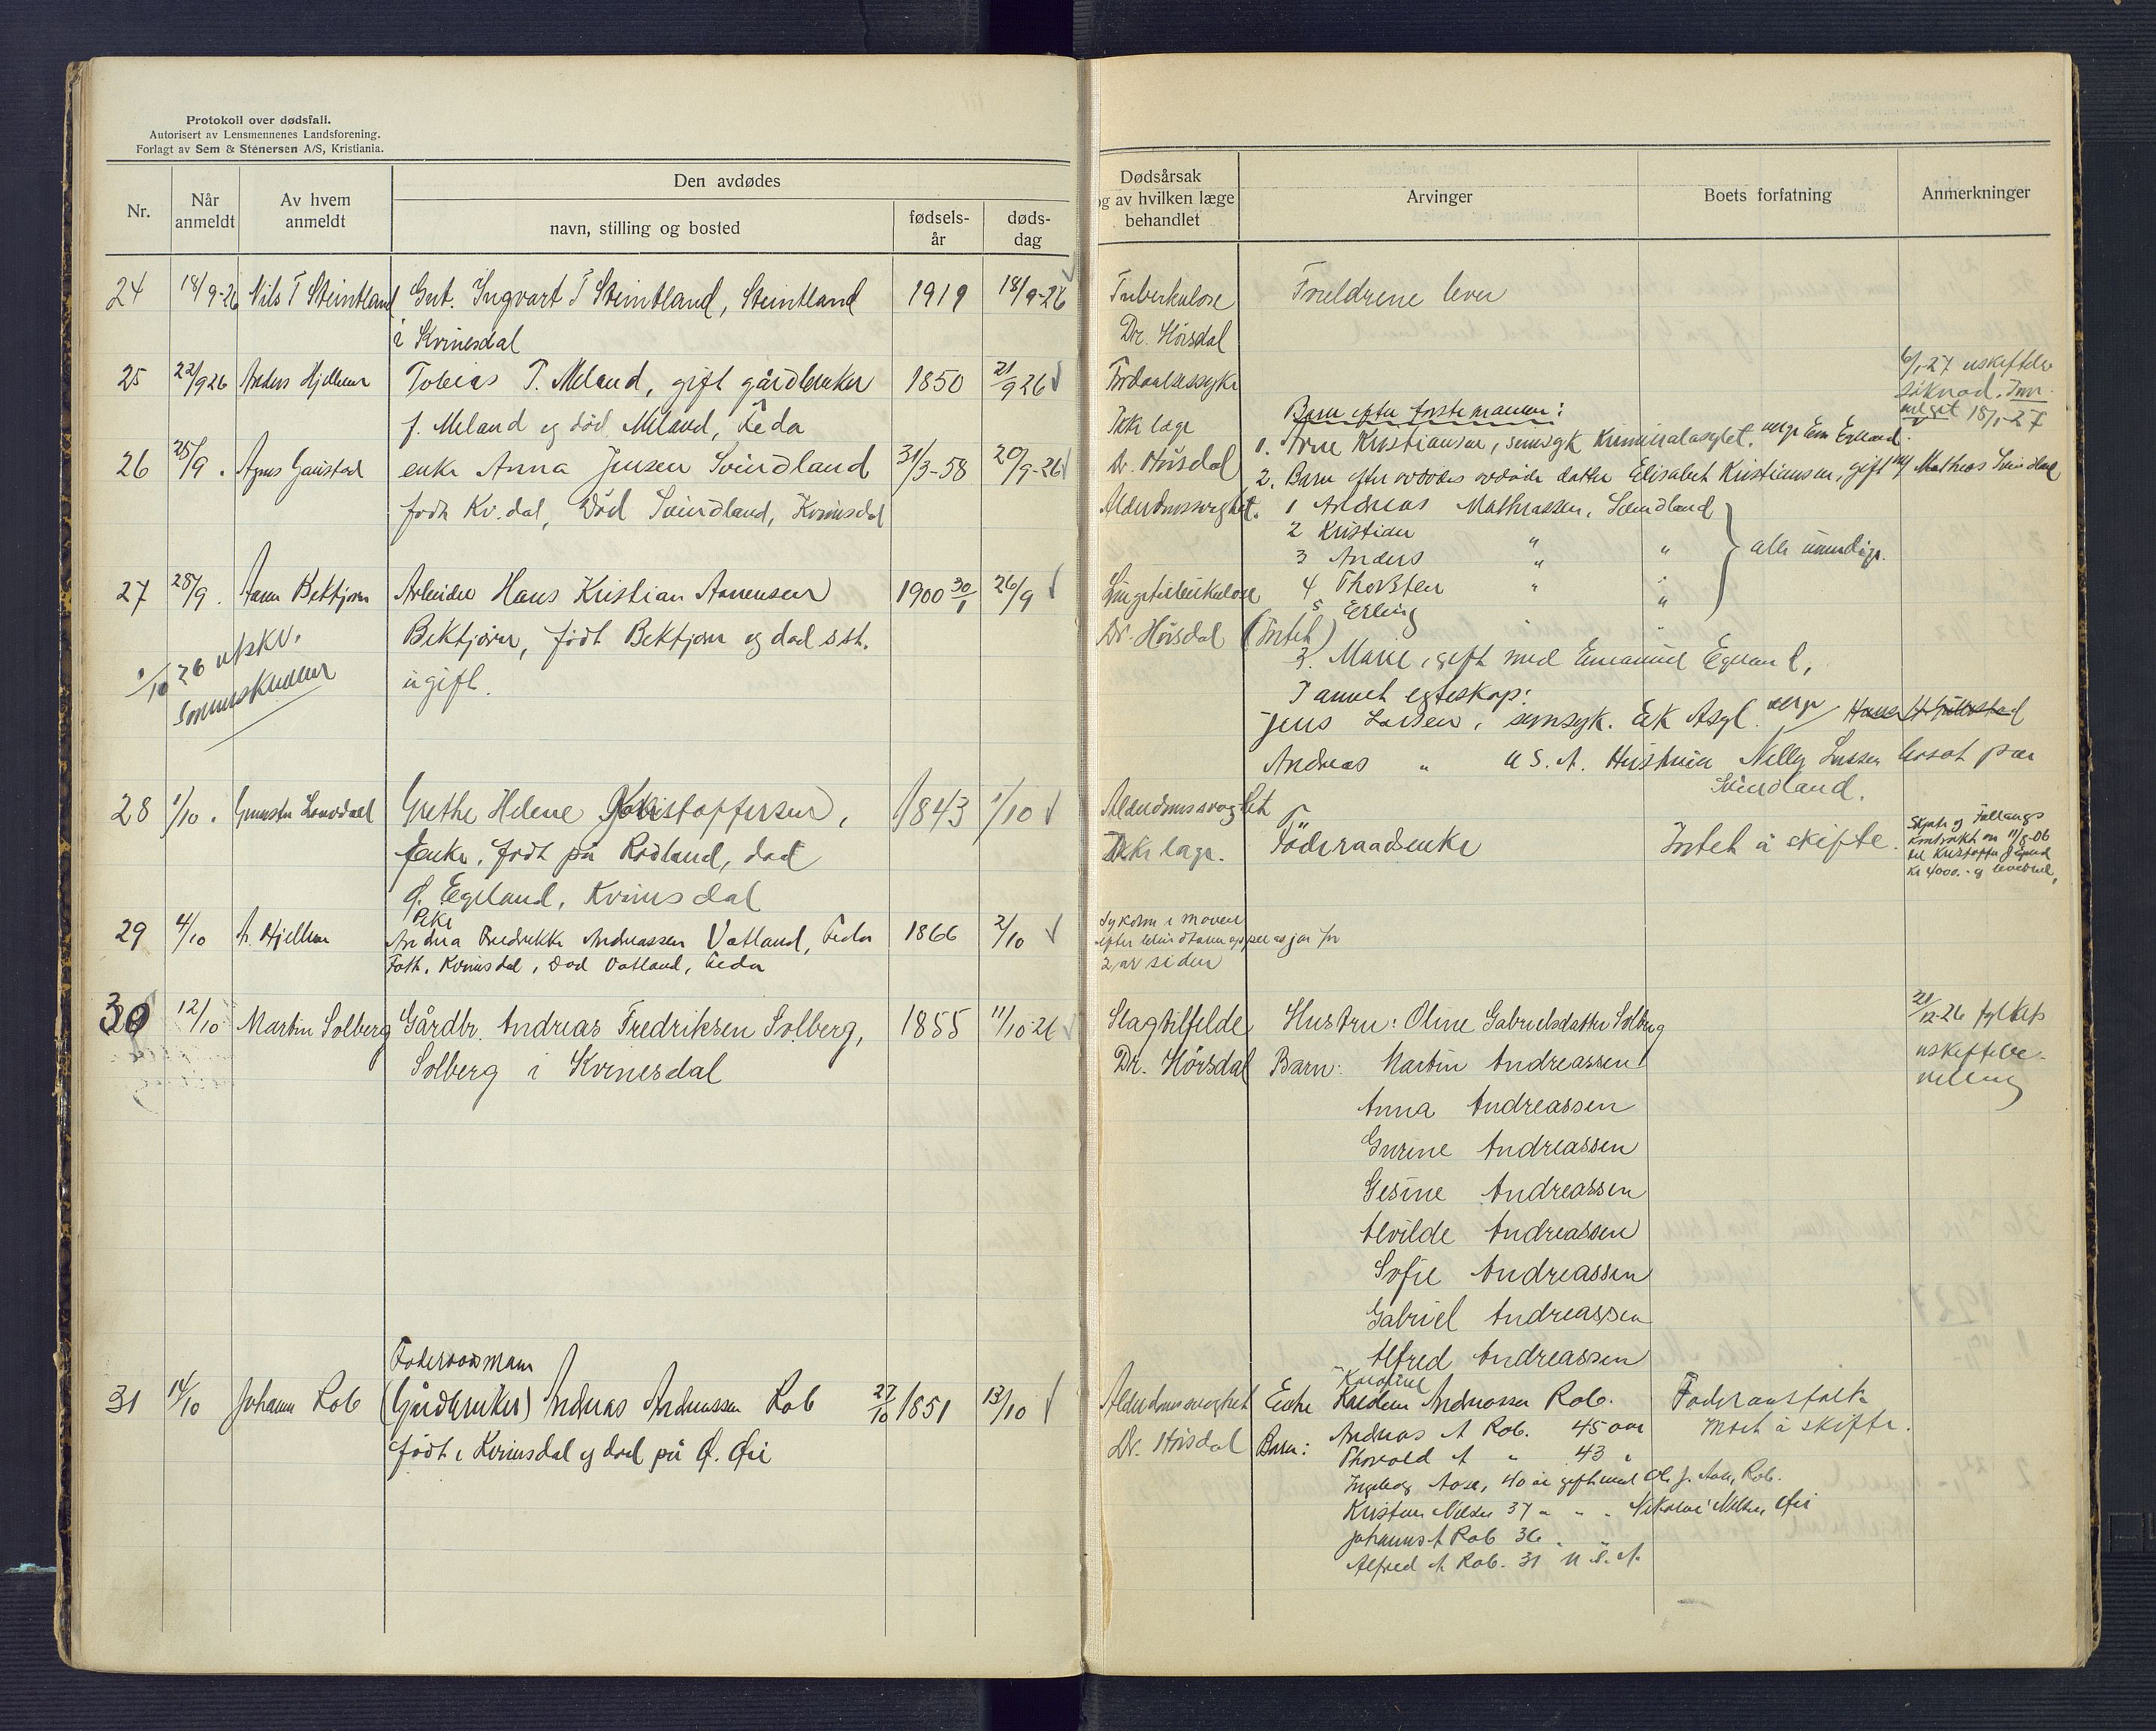 Protokoll over dødsfall.
Autorisert av Lensmennenes Landsforening.
Forlagt av Sem & Stenersen A/S, Kristiania.
Nr.
Når anmeldt
Av hvem anmeldt
Den avdødes
navn, stilling og bosted
fødsels-år
døds-dag
Dødsårsak
og av hvilken læge behandlet
Arvinger
Boets forfatning
Anmerkninger
24 18/9-26 Nils T Steintland Gut. Ingvart T Steintland, Steintland 1919 18/9-26 Tuberkulose Foreldrene lever
i Kvinesdal Dr. Hörsdal
25 22/9 26 Anders Hjelleur Tobias T. Meland, gift gårdbruker 1850 21/9 26 Ikke læge
f. Meland og död Meland, Feda
6/1-27 uskiftebe
söknad. Inn
18/1-27
26 25/9. Agnes Gaustad enke Anna Jensen Svindland 31/3-58 20/9-26 Dr. Hörsdal
född Kv.dal, död Svindland, Kvinesdal Alderdomssvaghet.
Barn efter förste mannen:
1. Arne Kristiansen, sinnsyk Kriminalasylet. verge Em Egeland.
2. Barn efter avdödes avdöde datter Elisabet Kristiansen, gift m/ Mathias Svindland
1 Andreas Mathiassen, Svindland
2 Kristian " "
3 Anders "
4 Thorsten " "
5 Erling " "
alle umyndige.
3. Marie, gift med Emanuel Egeland,
I annet egteskap:
Jens Larsen, sinsyk. Eik Asyl. verge Hans
Andreas " U.S.A. Hustruen Nelly Larsen bosat paa
Svindland.
27 28/9. Aanen Bektjörn Arbeider Hans Kristian Aanensen 1900 30/1 26/9 Lungetuberkulose
Bektjörn, född Bektjörn og död sst. Dr. Hörsdal (Intet)
ugift.
1/10 26 utskr.
28 1/10. Grethe Helene Kristoffersen, 1843 1/10 Alderdomssvaghet
Enke, född på Rödland, död Ikke læge. Föderaadsenke Intet å skifte.
Ø. Egeland, Kvinesdal
Skjøte og
kontrakt av 11/8-06
til Kristoffer Egeland
Kr 4000.- og
29 4/10 A. Hjelleur Pike
Andrea Fredrikke Andreassen Vatland, Feda 1866 2/10 Sykdom i maven
Född. Kvinesdal, död Vatland, Feda efter
2 år siden
30 12/10 Martin Solberg Gårdbr. Andreas Fredriksen Solberg, 1855 11/10-26 Slagtilfelde Hustru: Oline Gabrielsdatter Solberg
Solberg i Kvinesdal Dr. Hörsdal Barn: Martin Andreassen
21/12-26 fylt
uskiftebe-
villing
Anna Andreassen
Gurine Andreassen
Gesine Andreassen
Alvilde Andreassen
Sofie Andreassen
Gabriel Andreassen
Alfred Andreassen
31 14/10 Johann Rob Foderaadsmann
(Gårdbruker) Andreas Andreassen Rob 27/10 1851 13/10 Alderdomssvaghet Enke Karoline Andreassen Rob. Foderaadsfolk
född i Kvinesdal og död på Ø. Öie Dr. Hörsdal Barn: Andreas A Rob. 45 aar Intet å skifte.
Thorvald A " 43 "
Ingeborg Aase, 40 år gift med Ole J. Aase, Rob.
Kristine Nilsen 37 " " " Nikolai Nilsen, Öie
Johannes A Rob 36 "
Alfred A. Rob. 31 U.S.A.